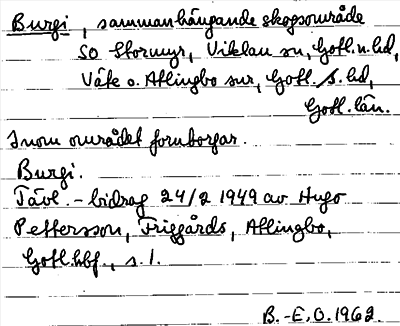 Burgi, sammanhängande skogsområde
SO Stormyr, Viklau sn, Gotl. n. hd,
Väte o. Atlingbo snr, Gotl. s. hd,
Gotl. län.
Inom området fornborgar.
Burgi.
Tävl.-bidrag 24/2 1949 av Hugo
Pettersson, Friggårds, Atlingbo,
Gotl. hbf., s. 1.
B.-E. O. 1962.